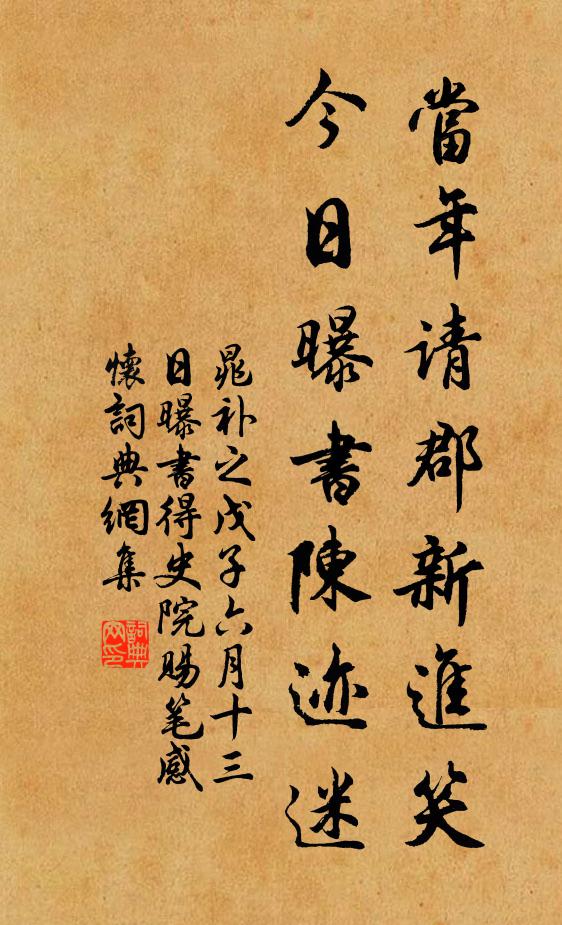 當年请郡新進笑
今日曝書陳迹迷
晁补之戊子六月十三
日曝書得史院賜笔感
懷詞典網集
詞典
网印